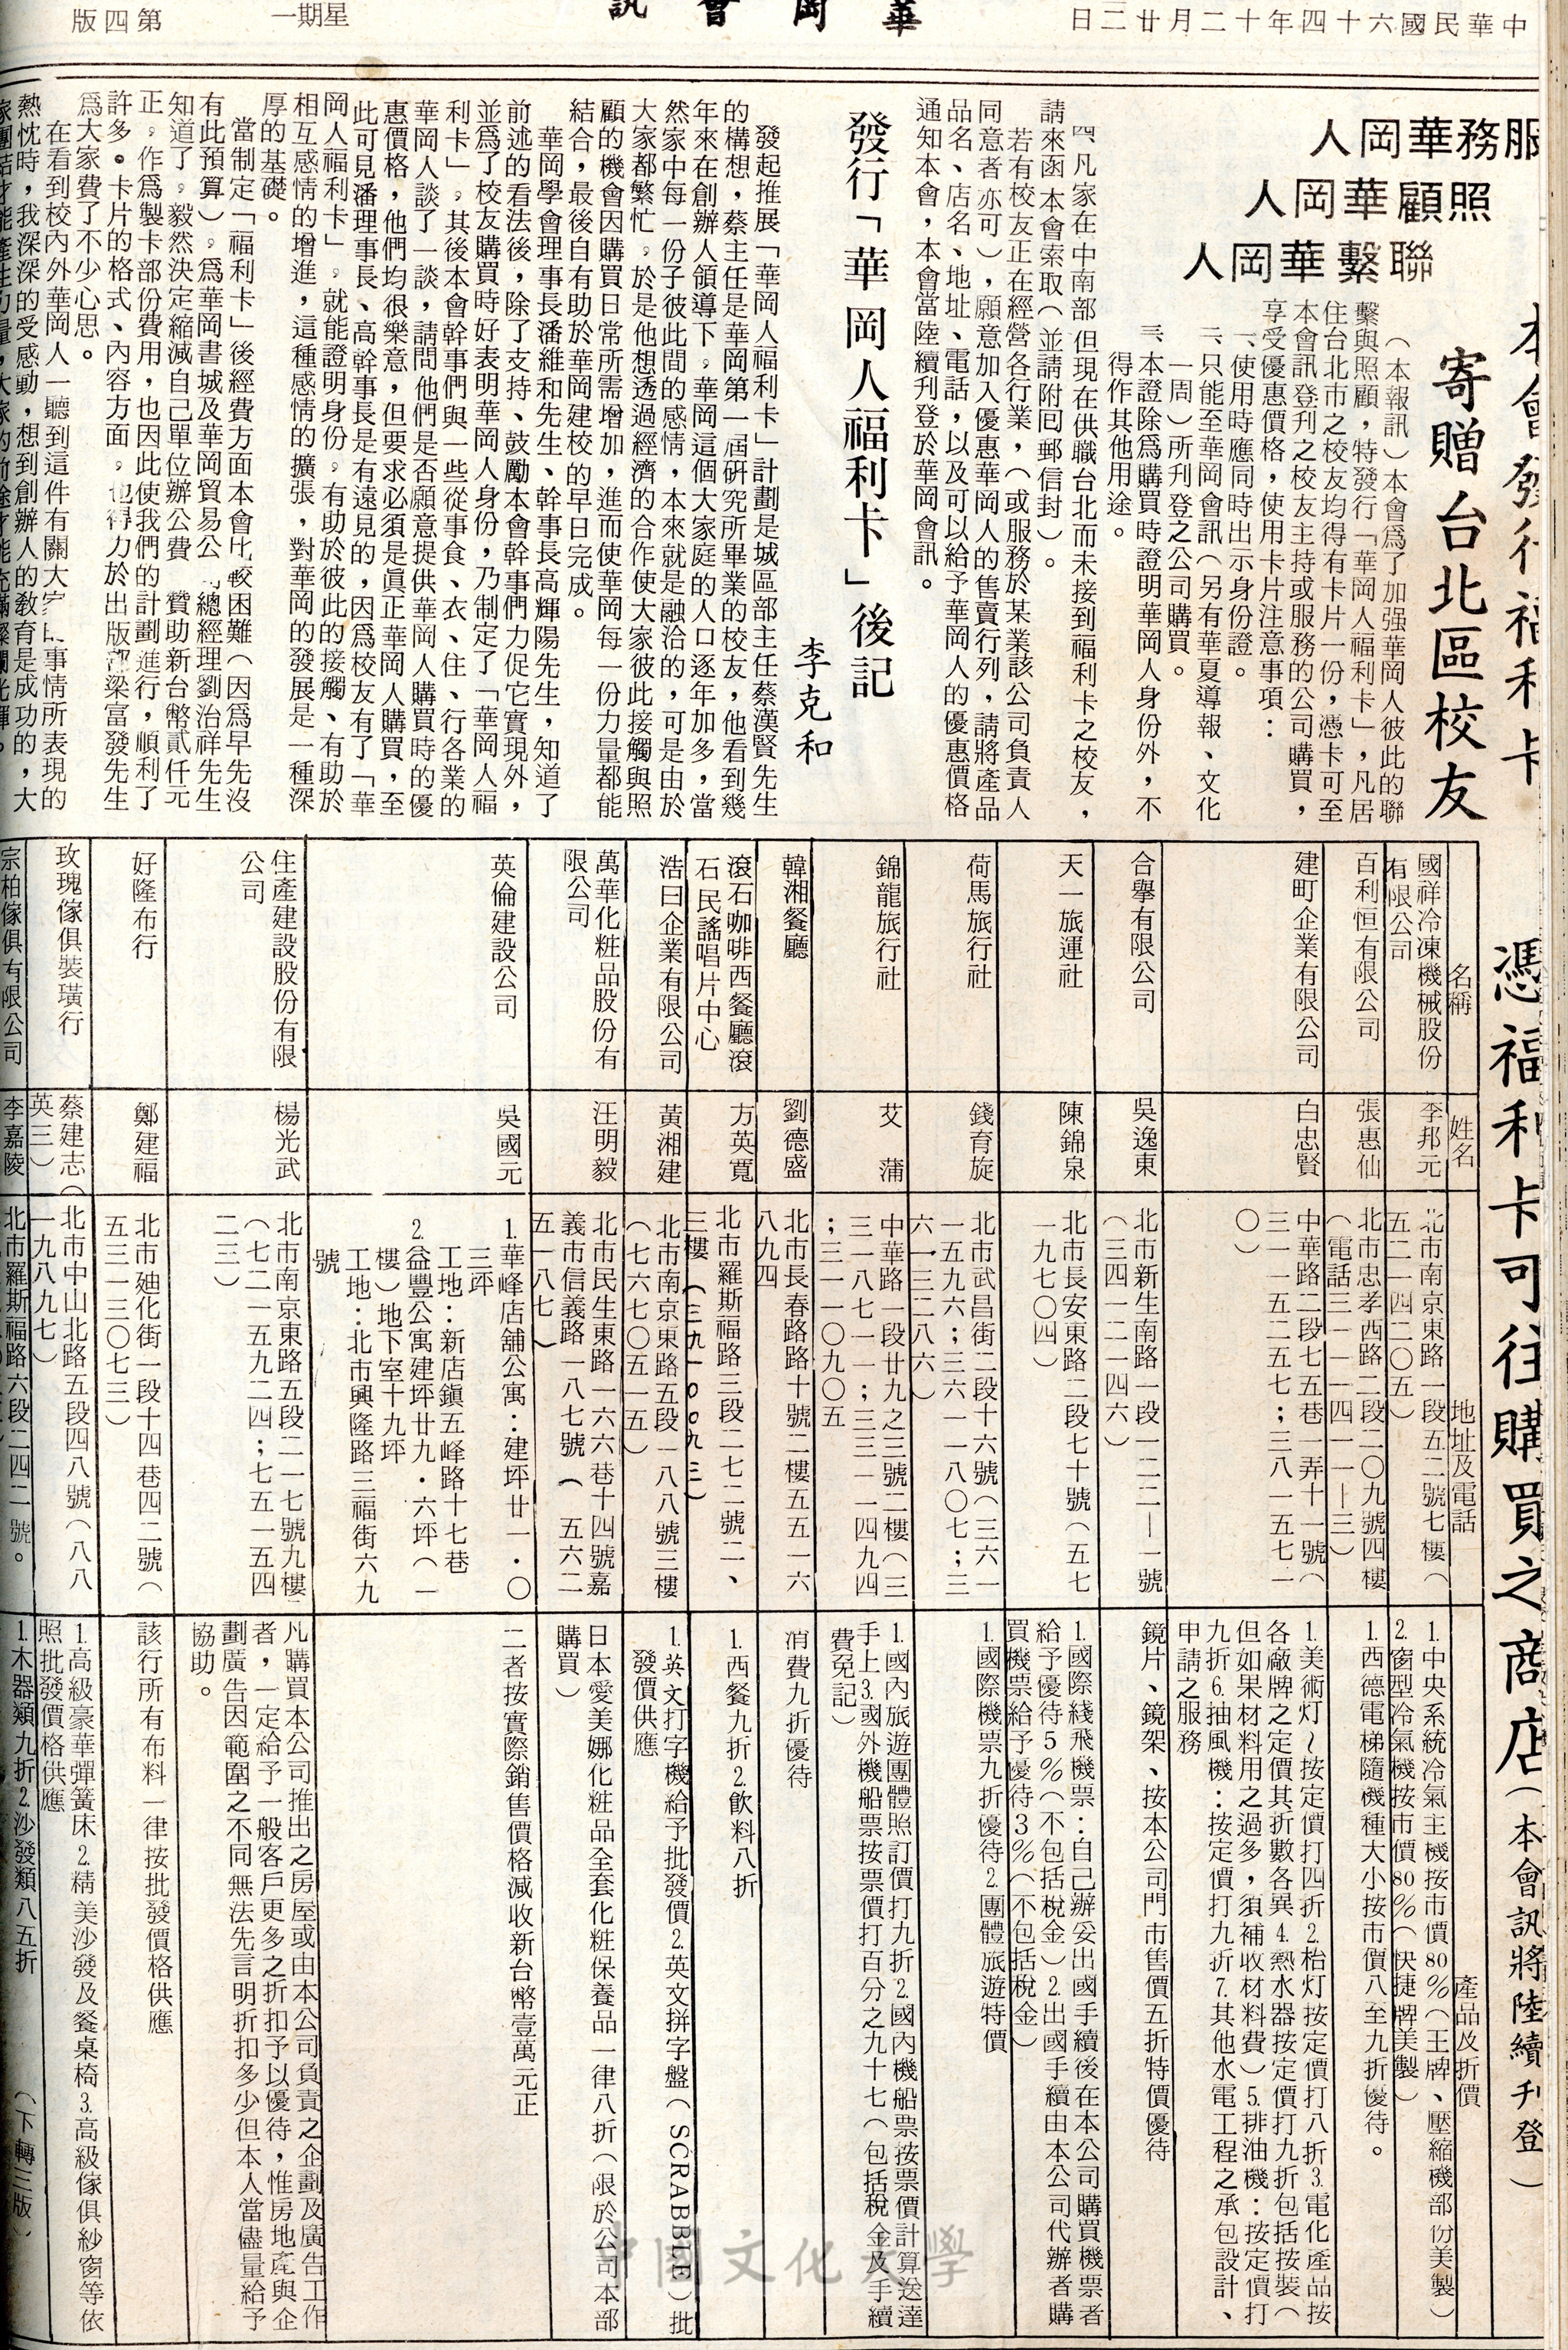 中華民國六十四年十二月廿二日
華岡會訊
星期一
第四版
服務華岡人
照顧華岡人
聯繫華岡人
本會發行福利卡
寄贈台北區校友
（本報訊）本會爲了加强華岡人彼此的聯
繫與照顧，特發行「華岡人福利卡」，凡居
住台北市之校友均得有卡片一份，憑卡可至
本會訊登刋之校友主持或服務的公司購買，
享受優惠價格，使用卡片注意事項：
一、使用時應同時出示身份證。
二、只能至華岡會訊（另有華夏導報、文化
一周）所刋登之公司購買。
三、本證除爲購買時證明華岡人身份外，不
得作其他用途。
四、凡家在中南部但現在供職台北而未接到福利卡之校友，
請來函本會索取（並請附回郵信封）。
若有校友正在經營各行業，（或服務於某業該公司負責人
同意者亦可），願意加入優惠華岡人的售賣行列，請將產品
品名、店名、地址、電話，以及可以給予華岡人的優惠價格
通知本會，本會當陸續刋登於華岡會訊。
發行「華岡人福利卡」後記
李克和
發起推展「華岡人福利卡」計劃是城區部主任蔡漢賢先生
的構想，蔡主任是華岡第一屆研究所畢業的校友，他看到幾
年來在創辦人領導下，華岡這個大家庭的人口逐年加多，當
然家中每一份子彼此間的感情，本來就是融洽的，可是由於
大家都繁忙，於是他想透過經濟的合作使大家彼此接觸與照
顧的機會因購買日常所需增加，進而使華岡每一份力量都能
結合，最後自有助於華岡建校的早日完成。
華岡學會理事長潘維和先生、幹事長高輝陽先生，知道了
前述的看法後，除了支持、鼓勵本會幹事們力促它實現外，
並爲了校友購買時好表明華岡人身份，乃制定了「華岡人福
利卡」，其後本會幹事們與一些從事食、衣、住、行各業的
華岡人談了一談，請問他們是否願意提供華岡人購買時的優
惠價格，他們均很樂意，但要求必須是眞正華岡人購買，至
此可見潘理事長、高幹事長是有遠見的，因爲校友有了「華
岡人福利卡」，就能證明身份，有助於彼此的接觸、有助於
相互感情的增進，這種感情的擴張，對華岡的發展是一種深
厚的基礎。
當制定「福利卡」後經費方面本會比較困難（因爲早先沒
有此預算），爲華岡書城及華岡貿易公司總經理劉治祥先生
知道了，毅然決定縮減自己單位辦公費，贊助新台幣貳仟元
正，作爲製卡部份費用，也因此使我們的計劃進行，順利了
許多。卡片的格式、內容方面，也得力於出版部梁富發先生
爲大家費了不少心思。
在看到校內外華岡人一聽到這件有關大家的事情所表現的
熱忱時，我深深的受感動，想到創辦人的教育是成功的，大
家團結才能產生力量，大家的前途才能充滿燦爛光輝。
憑福利卡可往購買之商店（本會訊將陸續刋登）
名稱
姓名
地址及電話
產品及折價
國祥冷凍機械股份
有限公司
李邦元
北市南京東路一段五二號七樓（
五二一四二〇五）
1.中央系統冷氣主機按市價80％（王牌、壓縮機部份美製）
2.窗型冷氣機按市價80％（快捷牌美製）
百利恒有限公司
張惠仙
北市忠孝西路二段二〇九號四樓
（電話三一一一四一一｜三）
1.西德電梯隨機種大小按市價八至九折優待。
建町企業有限公司
白忠賢
中華路二段七五巷一弄十一號（
三一一五二五七；三八一五七一
〇）
1.美術灯～按定價打四折2.枱灯按定價打八折3.電化產品按
各廠牌之定價其折數各異4.熱水器按定價打九折包括按裝（
但如果材料用之過多，須補收材料費）5.排油機：按定價打
九折6.抽風機：按定價打九折7.其他水電工程之承包設計、
申請之服務
合擧有限公司
吳逸東
北市新生南路一段一二二｜一號
（三四一二一四六）
鏡片、鏡架、按本公司門市售價五折特價優待
天一旅運社
陳錦泉
北市長安東路二段七十號（五七
一九七〇四）
1.國際綫飛機票：自己辦妥出國手續後在本公司購買機票者
給予優待5％（不包括稅金）2.出國手續由本公司代辦者購
買機票給予優待3％（不包括稅金）
荷馬旅行社
錢育旋
北市武昌街二段十六號（三六一
一五九六；三六一一八〇七；三
六一三二八六）
1.國際機票九折優待2.團體旅遊特價
錦龍旅行社
艾　蒲
中華路一段廿九之三號二樓（三
三一八七一一；三三一一四九四
；三一一〇九〇五
1.國內旅遊團體照訂價打九折2.國內機船票按票價計算送達
手上3.國外機船票按票價打百分之九十七（包括稅金及手續
費免記）
韓湘餐廳
劉德盛
北市長春路路十號二樓五五一六
八九四
消費九折優待
滾石咖啡西餐廳滾
石民謠唱片中心
方英寬
北市羅斯福路三段二七二號二、
三樓（三九一〇〇九三）
1.西餐九折2.飲料八折
浩曰企業有限公司
黃湘建
北市南京東路五段一八八號三樓
（七六七〇五一五）
1.英文打字機給予批發價2.英文拼字盤（SCRABBLE）批
發價供應
萬華化粧品股份有
限公司
汪明毅
北市民生東路一六六巷十四號嘉
義市信義路一八七號（五六二
五一八七）
日本愛美娜化粧品全套化粧保養品一律八折（限於公司本部
購買）
英倫建設公司
吳國元
1.華峰店舖公寓：建坪廿一．〇
三坪
工地：新店鎮五峰路十七巷
2.益豐公寓建坪廿九．六坪（一
樓）地下室十九坪
工地：北市興隆路三福街六九
號
二者按實際銷售價格減收新台幣壹萬元正
住產建設股份有限
公司
楊光武
北市南京東路五段二一七號九樓
（七二一五九二四；七五一五四
二三）
凡購買本公司推出之房屋或由本公司負責之企劃及廣告工作
者，一定給予一般客戶更多之折扣予以優待，惟房地產與企
劃廣告因範圍之不同無法先言明折扣多少但本人當儘量給予
協助。
好隆布行
鄭建福
北市廸化街一段十四巷四二號（
五三一三〇七三）
該行所有布料一律按批發價格供應
玫瑰傢俱裝璜行
蔡建志（
英三）
北市中山北路五段四八號（八八
一九八九七）
1.高級豪華彈簧床2.精美沙發及餐桌椅3.高級傢俱紗窗等依
照批發價格供應
宗柏傢俱有限公司
李嘉陵
北市羅斯福路六段二四二號。
1.木器類九折2.沙發類八五折
（下轉三版）
中國文化大學